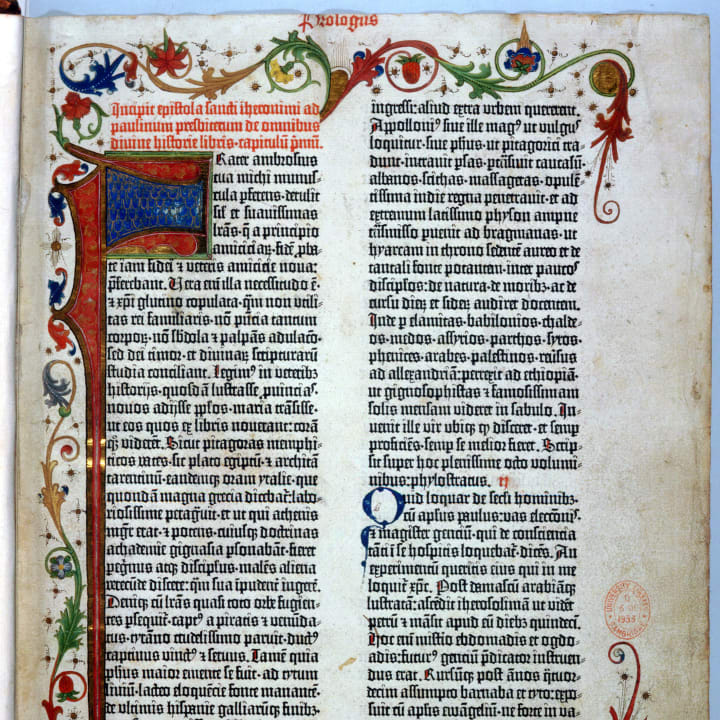 Prologus
Incipit epistola sancti iheronimi ad
paulinum presbiterum de omnibus
divine historie libris. capitulū p̄mū.
Frater ambrosius
tua michi munus-
cula p̄ferens. detulit
sil' et suavissimas
l̄ras. q̄ a principio
amiciciaꝝ. fidē p̱ba-
te iam fidei ⁊ veteris amicicie nova:
p̄ferebant. Vera em̄ illa necessitudo ē.
⁊ xp̄i glutino copulata. qm̄ non utili-
tas rei familiaris. non p̄ntia tantum
corpoꝝ. non sb̄dola ⁊ palpās adulaco.
sed dei timor. et divinaꝝ scripturarū
studia conciliant. Legim⁹ in veterib⁊
historijs. quosdā lustrasse. p̱uincias.
novos adijsse pp̱los. maria trāsisse.
ut eos quos ex libris noverant: corā
q̱ꝫ viderēt. Sicut pitagoras memphi-
ticos vates. sic plato egiptū. ⁊ architā
tarentinū. eandemꝙ oram ytalie. que
quondā magna grecia dicebat̄. labo-
riosissime peragiuit. et ut qui athenis
mgr̄ erat. ⁊ potens. cuiusꝙ doctrinas
achademie gignasia psonabāt. fieret
peg̓nus atꝙ discipl̓us. malēs aliena
verecunde discere: qm̄ sua ĩpudent̓ ingere̓.
Deniꝙ cū l̄ras quasi toto orbe fugien-
tes p̄seq̓ret̓. capt⁹ a piratis ⁊ venūda-
tus. tyrāno crudelissimo paruit. duct⁹
captivus vinct⁹ ⁊ servus. Tamē quia
ph̄us maior emente se fuit. ad tytum
liviū. lacteo eloquētie fonte manantē.
de ultimis hispanie galliarūꝙ finib⁊.
ingressi: aliud extra urbem quererent.
Appolloni⁹ sive ille mag⁹ ut vulgus
loquitur. sive ph̄us. ut pitagorici tra-
dunt. intravit p̄sas. p̄trāsivit caucasū.
albanos. scithas. massagetas. opulē-
tissima indie regna penetravit. et ad
extremum latissimo physon amne
trāsmisso pervēit ad bragmanas. ut
hyarcam in throno sedentē aureo et de
tantali fonte potantem. inter paucos
discipl̓os. de natura. de moribꝫ ac de
cursu dieꝝ et sideꝝ audiret docentem.
Inde p̱ elamitas. babilonios. chalde-
os. medos. assyrios. parthos. syros.
phenices. arabes. palestinos. reversus
ad allexandriā. perrexit ad ethiopiā.
ut gignosophistas ⁊ famosissimam
solis mensam videret in sabulo. In-
venit ille vir ubiꝙ qđ disceret. et semp̱
proficiēs. semp̱ se melior fieret. Scrip-
sit super hoc plenissime octo volumi-
nibus. phylostratus. II
Quid loquar de secl̓i hominib⁊.
cū apl̄us paulus: vas electōnis.
⁊ magister gentiū. qui de conscientia
tāti ĩ se hospicis loquebat̓. dicēs. An
experimentū queritis eius qui in me
loquit̓ xp̄c. Post damascū arabiāꝙ
lustratā: ascēdit iherosolimā ut videt̓
petrū ⁊ māsit apud eū dieb⁊ quindecī.
Hoc em̄ misterio ebdomadis et ogdo-
adis: futur⁹ gentiū p̄dicator instruen-
dus erat. Rursūꝙ post ānos q̓tuor-
decim assumpto barnaba et tyto: expo-
suit cū apl̄is ewangeliū. ne forte in va-
UNIVERSITY LIBRARY
1933
CAMBRIDGE